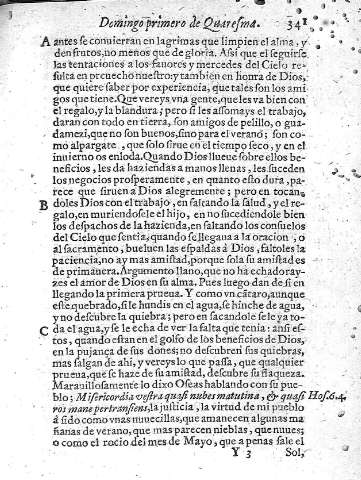 Domingo primero de Quaresma. 341
A antes se conuierran en lagrimas que limpien el alma, y
den frutos, no menos que de gloria. Assi que el seguirse
las tentaciones a los fauores y mercedes del Cielo re-
sulta en prouecho nuestro: y tambien en honra de Dios,
que quiere saber por experiencia, que tales son los ami
gos que tiene. Que vereys vna gente, que les va bien con
el regalo, y la blandura; pero si les assomays el trabajo,
daran con todo en tierra, son amigos de pelillo, o gua-
damezi, que no son buenos, sino para el verano; son co
mo alpargate, que solo sirue en el tiempo seco, y en el
inuierno os enloda. Quando Dios llueue sobre ellos be-
neficios, les da haziendas a manos llenas, les suceden
los negocios prosperamente, en quanto esto dura, pa-
rece que siruen a Dios alegremente; pero en tocan-
B doles Dios con el trabajo, en faltando la salud, y el re-
galo, en muriendosele el hijo, en no sucediendole bien
los despachos de la hazienda, en faltando los consuelos
del Cielo que sentia, quando se llegaua a la oracion; o
al sacramento, bueluen las espaldas à Dios, faltoles la
paciencia, no ay mas amistad, porque sola su amistad es
de primauera. Argumento llano, que no ha echado ray-
zes el amor de Dios en su alma. Pues luego dan de si en
llegando la primera prueua. Y como vn cataro, aunque
este quebrado, si le hundis en el agua, se hinche de agua,
y no descubre la quiebra; pero en sacandole se le ya to-
C da el agua, y se le echa de ver la falta que tenia: ansi es-
tos, quando estan en el golfo de los beneficios de Dios,
en la pujança de sus dones; no descubren sus quiebras,
mas salgan de ahi, y vereys lo que passa, que qualquier
prueua, que se haze de su amistad, descubre su flaqueza.
Marauillosamente lo dixo Oseas hablando con su pue-
blo; Misericordia vestra quasi nubes matutina, & quasi Hos. 6. 4.
ros mane pertransens, la justicia, la virtud de mi pueblo
à sido como vnas nuuecillas, que amanecen algunas ma
ñanas de verano, que mas parecen nieblas, que nuues;
o como el rocio del mes de Mayo, que a penas sale el
Y 3 Sol,